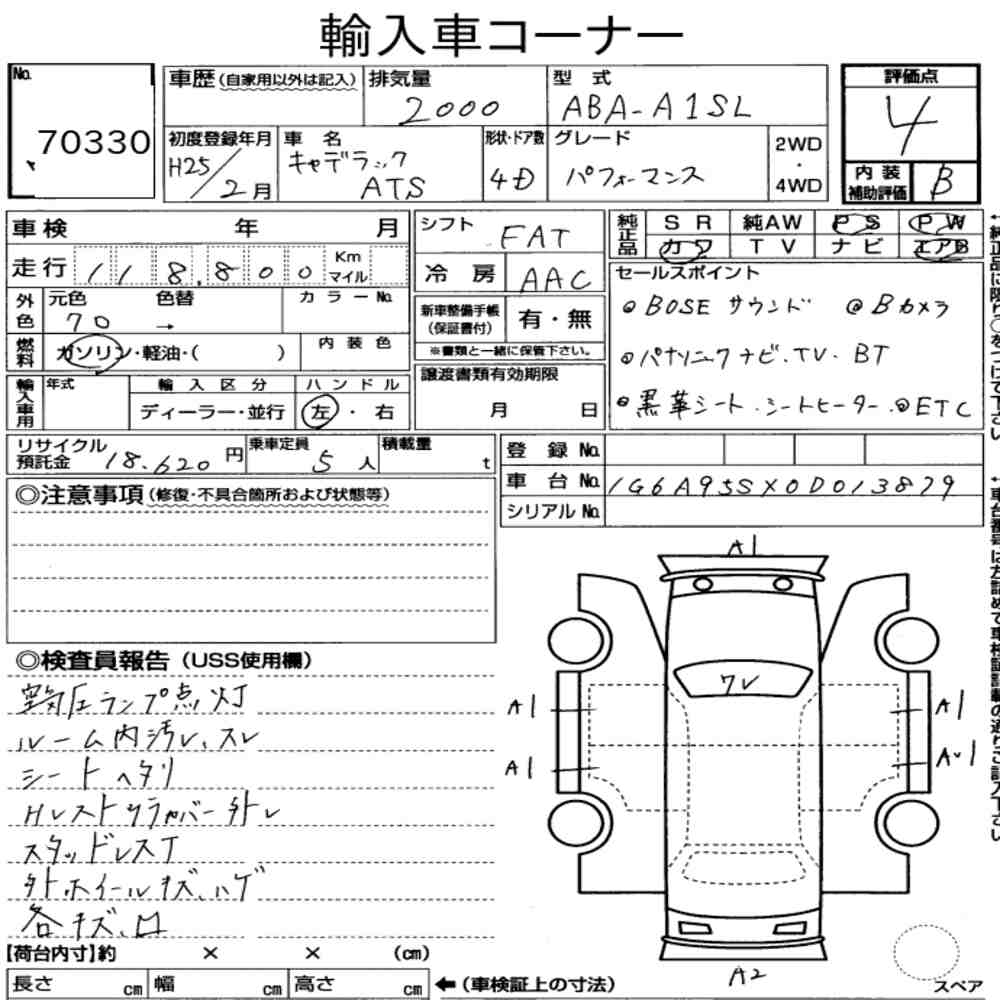 輸入車コーナー
No. 70330
車歴(自家用以外は記入) 排気量 2000 型式 ABA-A1SL
初度登録年月 H25/2月 車名 キャデラック ATS 形状・ドア数 4D グレード パフォーマンス 2WD・4WD
評価点 4
内装補助評価 B
車検 年 月
走行 118,800 Km マイル
外色 元色 70 色替 → カラーNo.
燃料 ガソリン・軽油・( ) 内装色
輸入車用 年式 輸入区分 ディーラー・並行 ハンドル 左・右
シフト FAT
冷房 AAC
新車整備手帳(保証書付) 有・無
※書類と一緒に保管下さい。
譲渡書類有効期限 月 日
純正品 SR 純AW PS PW
カワ TV ナビ エアB
セールスポイント
◎BOSEサウンド ◎Bカメラ
◎パナソニックナビ.TV.BT
◎黒革シート.シートヒーター.◎ETC
リサイクル預託金 18.620円 乗車定員 5人 積載量 t
登録No.
車台No. 1G6A95SX0D013879
シリアルNo.
◎注意事項(修復・不具合箇所および状態等)
◎検査員報告(USS使用欄)
空気圧ランプ点灯
ルーム内汚レ、スレ
シートヘタリ
スタッドレスT
外ホイールキズ、ハゲ
【荷台内寸】約 × × (cm)
長さ cm 幅 cm 高さ cm ←(車検証上の寸法)
A1
A1
A1
A1
A2
スペア